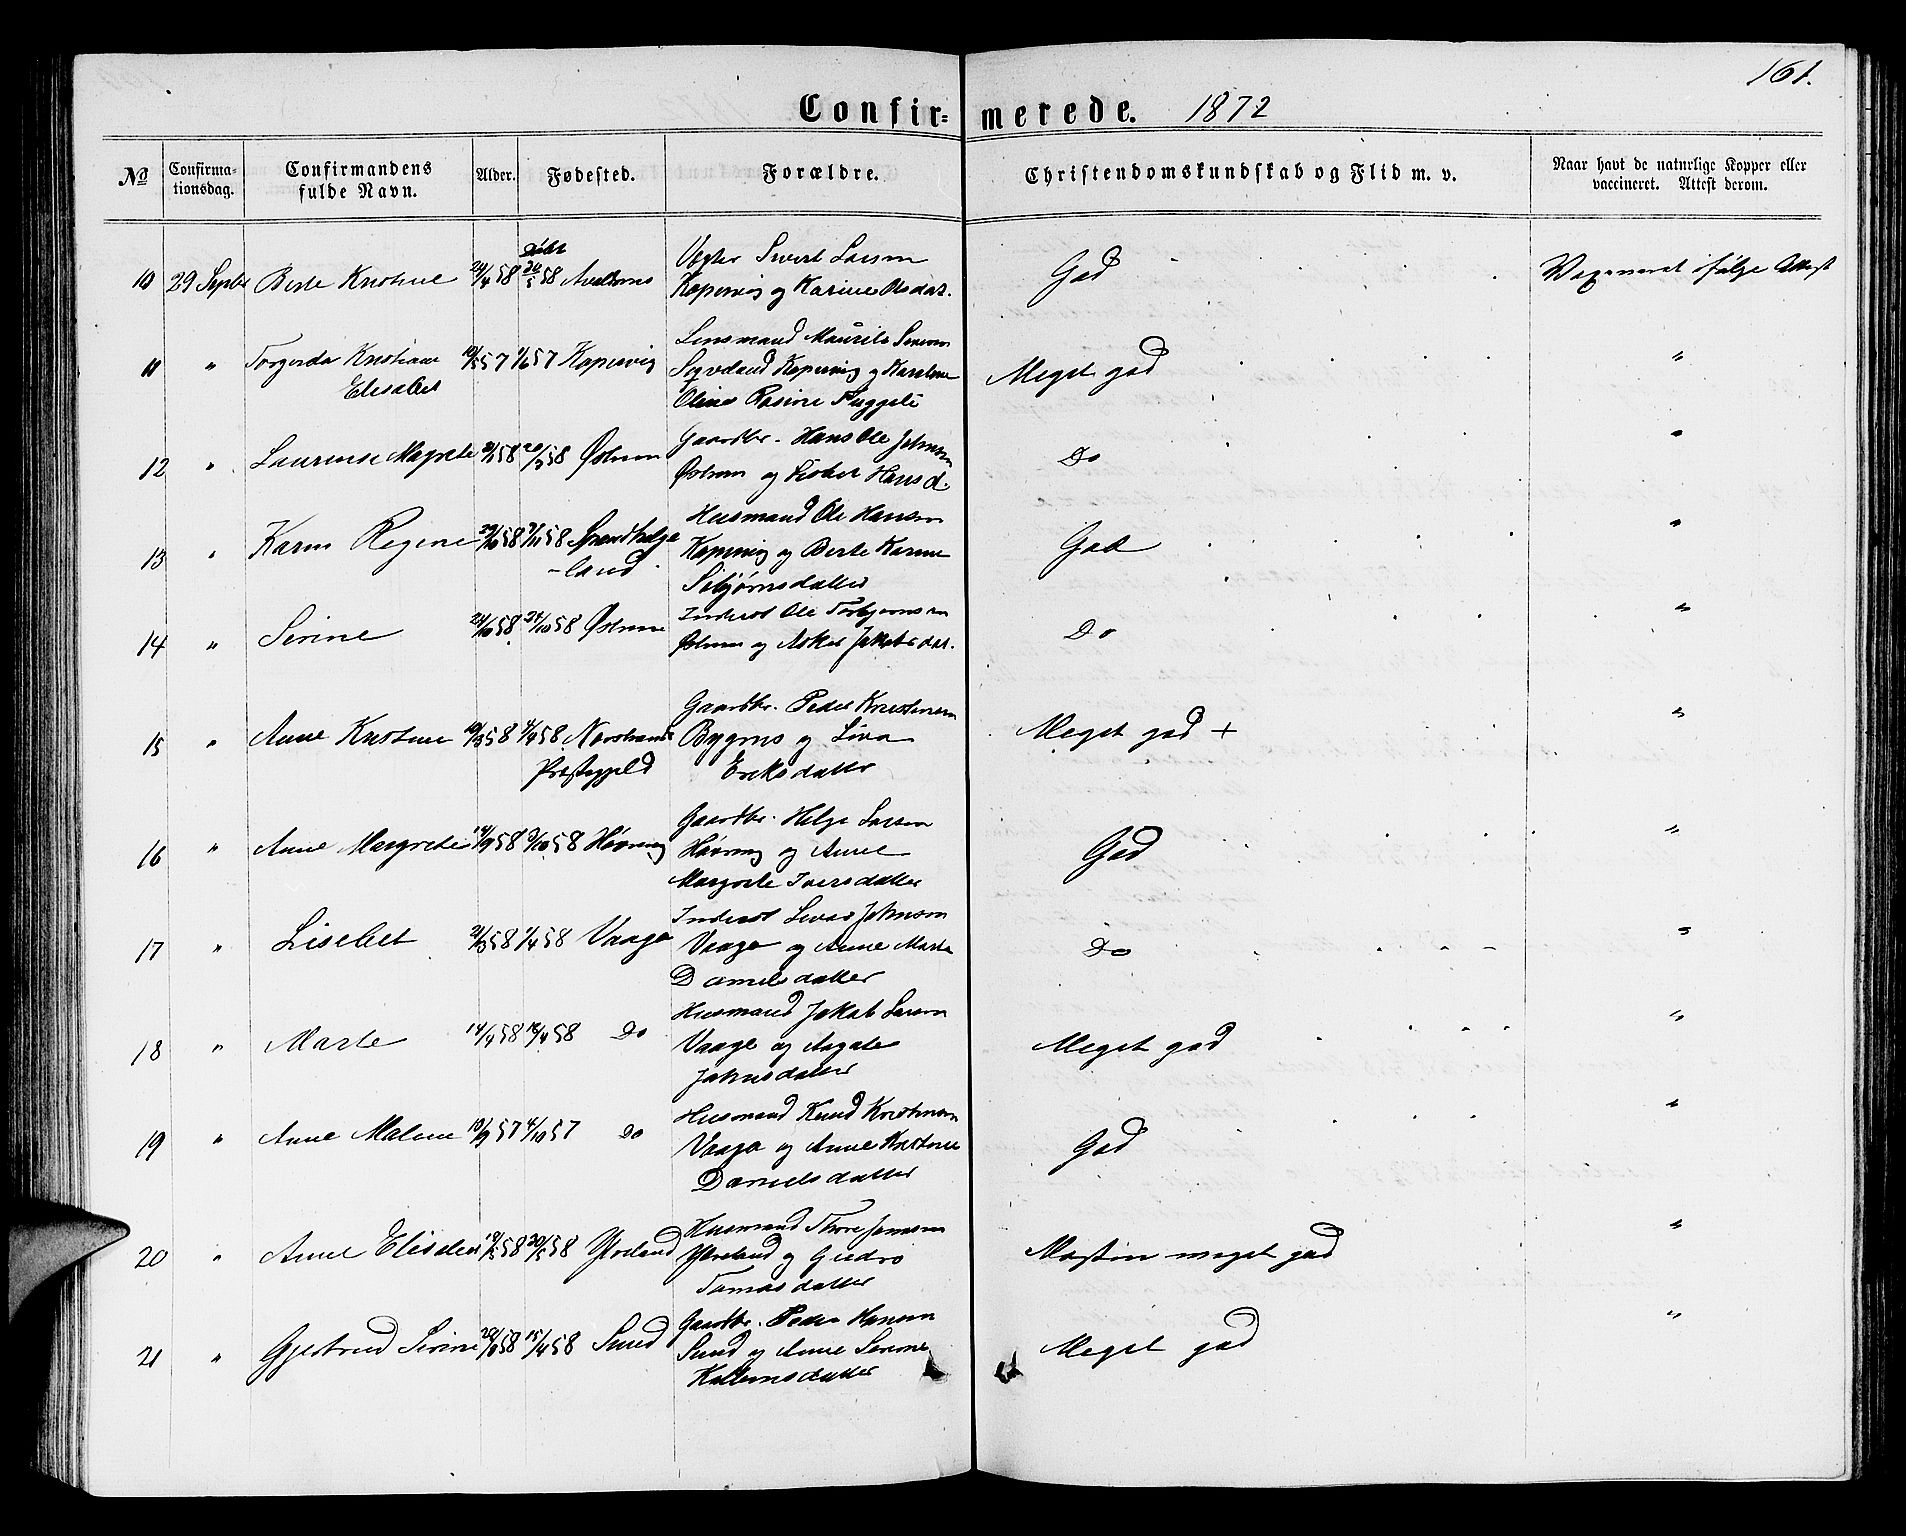 161.
Confirmerede. 1872
No
Confirmationsdag.
Confirmandens fulde Navn.
Alder.
Fødested.
Forældre.
Christendomskundskab og Flid m. v.
Naar havt de naturlige Kopper eller vaccineret. Attest derom.
døbt
10 29 Septbr Berte Kristine 24/4 58 24/5 58 Sivert Larsen
Kopervig og Karine Olsdat. God Vaxineret ifølge Attest
11 " Torgerda Kristiane 57 57 Kopervig Lensmand Maurits Sørensen
Elisabet Kopervig og Karoline
Oline Rosine Meget god "
12 " Laurense Magrete 58 58 Østrem Gaardbr. Hans Ole Johnsen
Østrem og Hansd. Do "
13 " Karen Regine 29/10 58 58 Husmand Ole Hansen
-land Kopervig og Berte Karine
datter God "
14 " Serine 24/10 58 58 Østrem Inderst Ole Torbjørnsen
Østrem og Jakobsdat. Do "
15 " Anne Kristine 58 4/4 58 Nerstrand Gaardbr. Peder Kristensen
Præstegjeld Bygnes og Siva
Eriksdatter Meget god +  "
16 " Anne Margrete 14/9 58 3/10 58 Høvring Gaardbr. Helge Larsen
Høvring og Anne
Margrete Iversdatter God "
17 " Lisebet 21/3 58 58 Vaage Inderst Johnsen
Vaage og Anne Marta
Danielsdatter Do "
18 " Marte 14/4 58 18/4 58 Do Husmand Jakob Larsen
Vaage og Aagate
Johnsdatter Meget god "
19 " Anne Malene 10/9 57 4/10 57 Do Husmand Knud Kristensen
Vaage og Anne Kristine
Danielsdatter God "
20 " Anne Elisabet 58 20/5 58 Yreland Husmand Thore Jensen
Yreland og Gudro
Tomasdatter Næsten meget god "
21 " Gjertrud Serine 58 15/4 58 Sund Gaardbr. Peder Hansen
Sund og Anne Serine
datter Meget god "